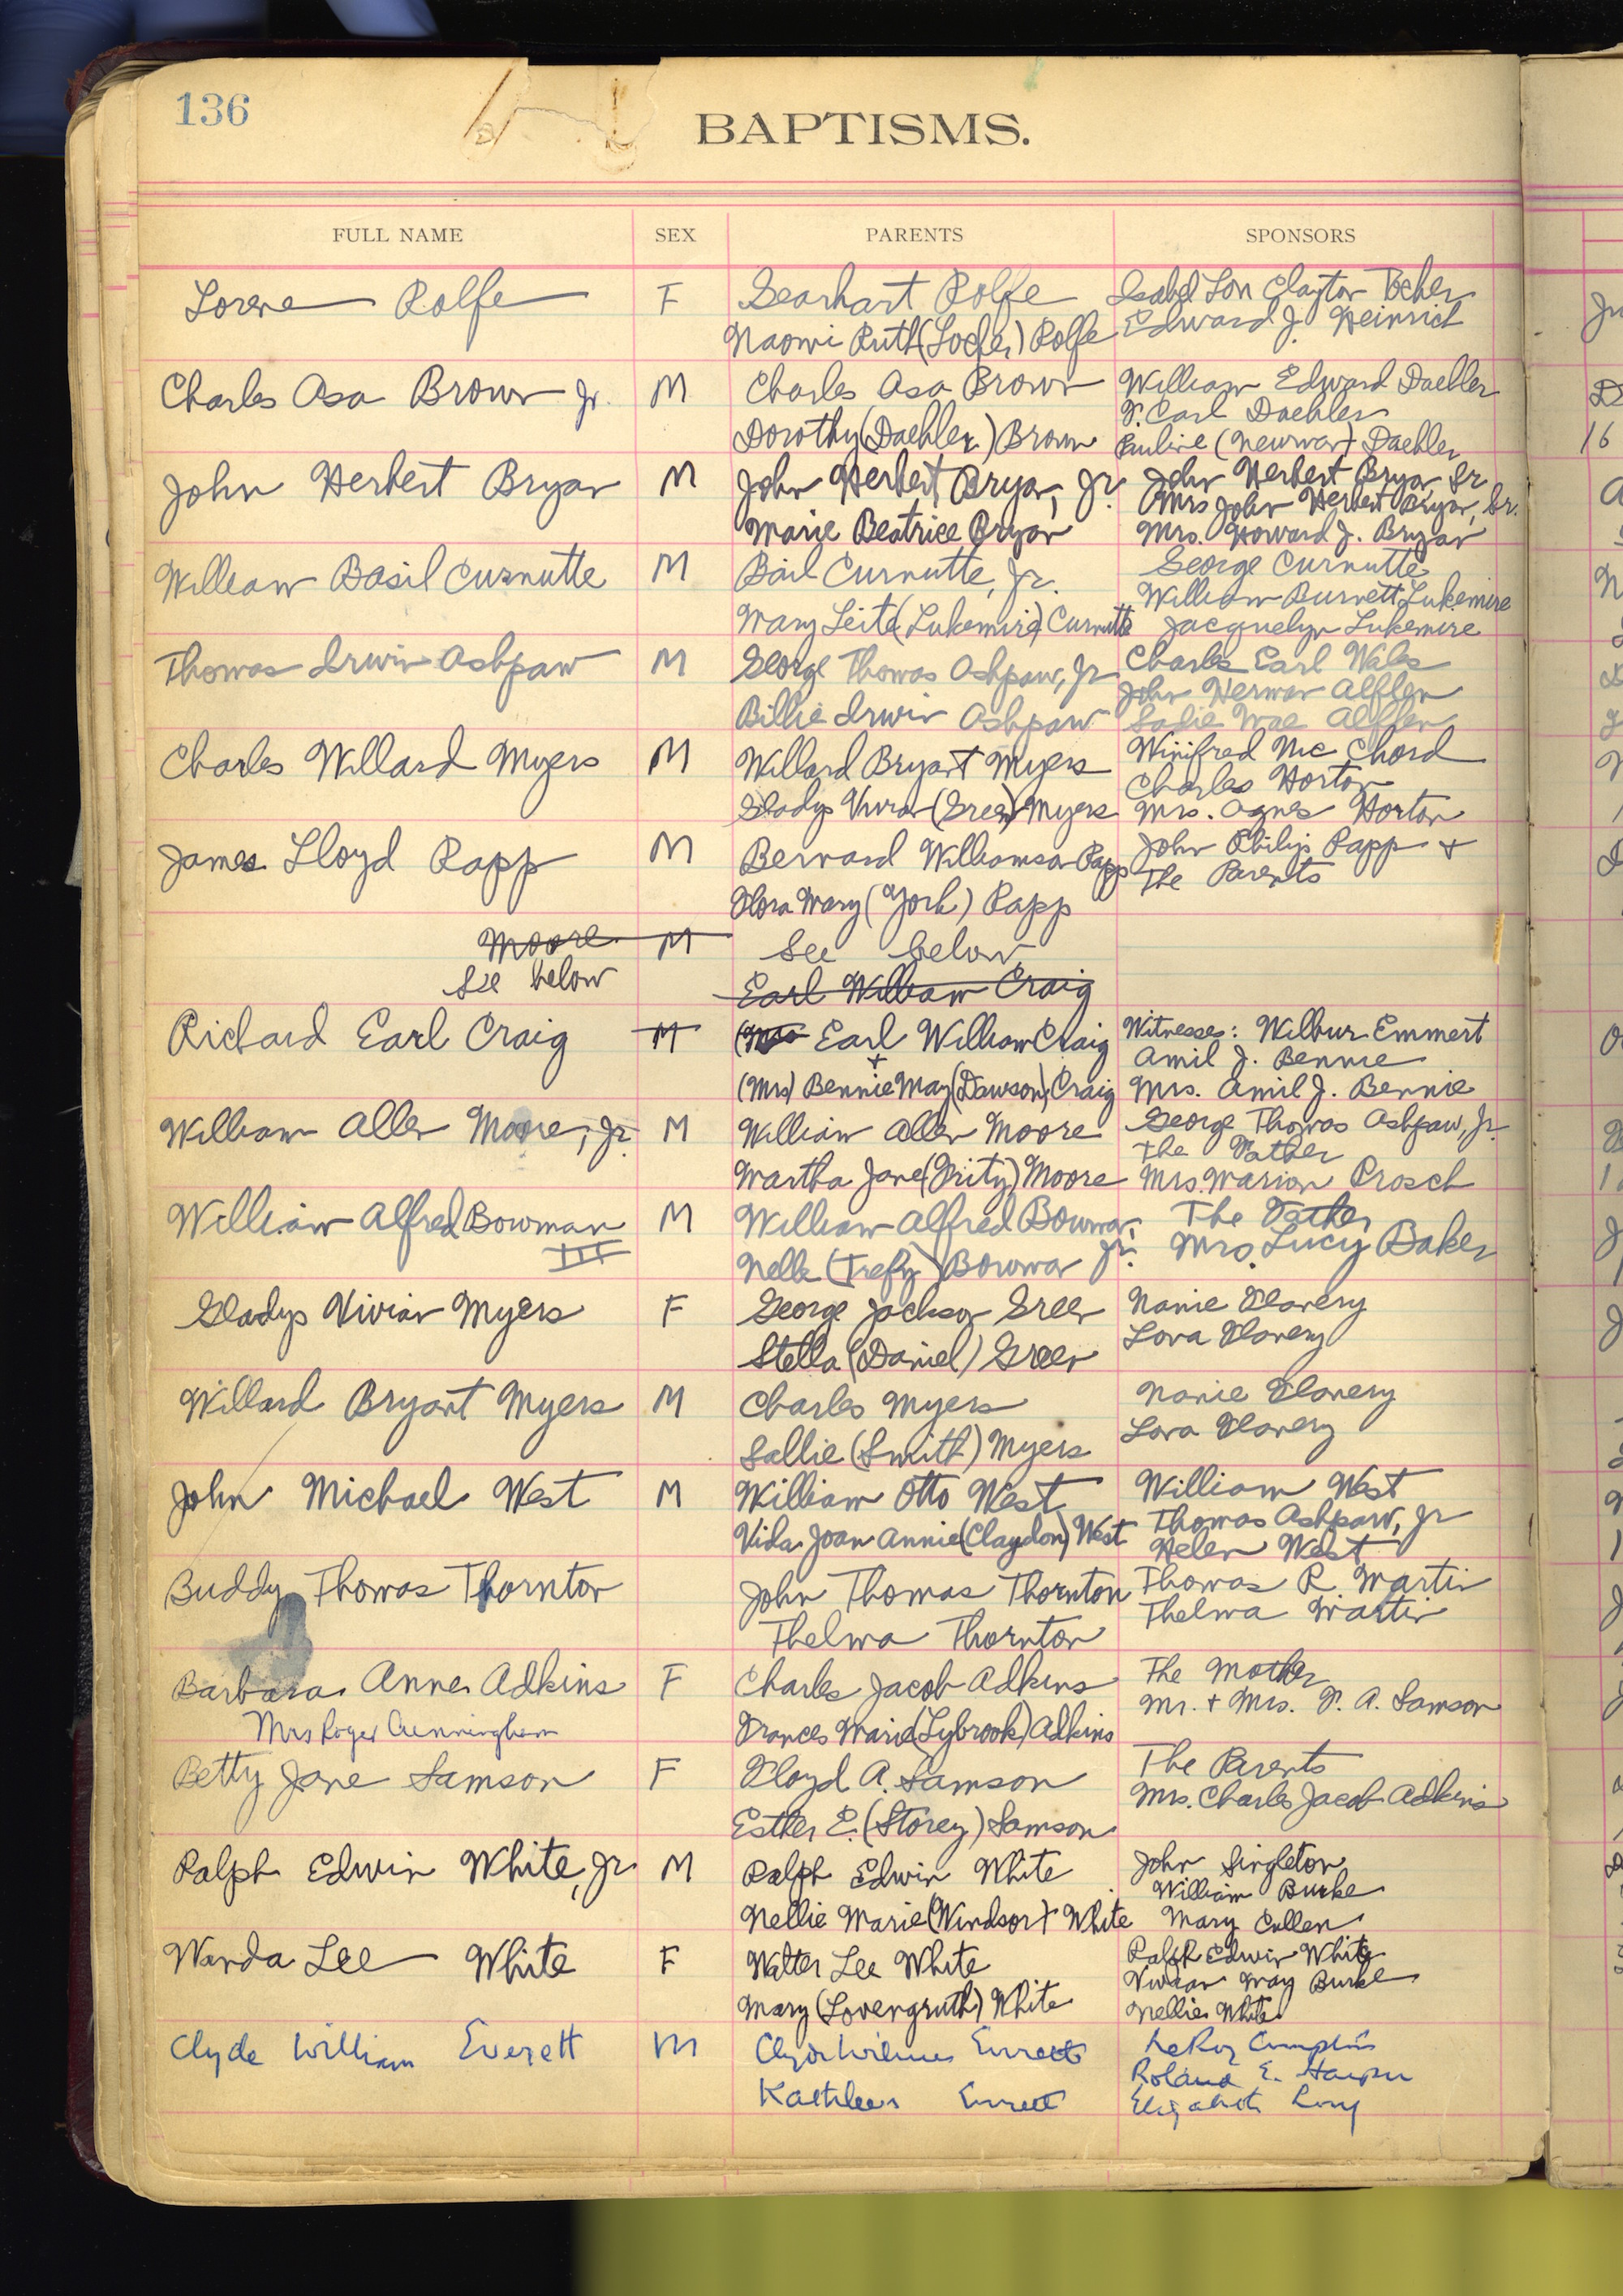 136
BAPTISMS.
FULL NAME SEX PARENTS SPONSORS
Lorene Rolfe F Gearhart Rolfe Isabel Lon Clayton
Edward J. Heinrich
Naomi Ruth Rolfe
Charles Asa Brown Jr. M Charles Asa Brown William Edward Daehler
F. Carl Daehler
Dorothy (Daehler) Brown Pauline (Newman) Daehler
John Herbert Bryan M John Herbert Bryan, Jr. John Herbert Bryan Sr
Mrs John Herbert Bryan, Sr.
Marie Beatrice Bryan Mrs. Howard J. Bryan
William Basil Curnutte M Basil Curnutte, Jr. George Curnutte
William Burnett Lukemire
Mary Leite (Lukemire) Curnutte Jacquelyn Lukemire
Thomas Irwin Ashpaw M George Thomas Ashpaw, Jr Charles Earl Wales
John Herman Alfler
Billie Irwin Ashpaw Sadie Mae Alfler
Charles Willard Myers M Willard Bryant Myers Winifred McChord
Charles Horton
Gladys Vivian (Green) Myers Mrs. Agnes Horton
James Lloyd Rapp M Bernard Williamson Rapp John Philip Rapp +
The Parents
Flora Mary (York) Rapp
Moore M See below
See below
Earl William Craig
Richard Earl Craig M Earl William Craig Witnesses: Wilbur Emmert
+ Amil J. Bennie
(Mrs) Bennie May (Dawson) Craig Mrs. Amil J. Bennie
William Allen Moore, Jr. M William Allen Moore George Thomas Ashpaw, Jr.
The Father
Martha Jane (Fritz) Moore Mrs. Marion Prosch
William Alfred Bowman M William Alfred Bowman, The Father
III Nelle (Trefz) Bowman Jr. Mrs. Lucy Baker
Gladys Vivian Myers F George Jackson Green Nanie Flanery
Lora Flanery
Stella (Daniel) Green
Willard Bryant Myers M Charles Myers Nanie Flanery
Lora Flanery
Sallie (Smith) Myers
John Michael West M William Otto West William West
Thomas Ashpaw, Jr
Vida Joan Annie (Claydon) West Helen West
Buddy Thomas Thornton John Thomas Thornton Thomas R. Martin
Thelma Martin
Thelma Thornton
Barbara Anne Adkins F Charles Jacob Adkins The Mother
Mr. + Mrs. F. A. Samson
Mrs Roger Cunningham Frances Marie (Lybrook) Adkins
Betty Jane Samson F Floyd A. Samson The Parents
Mrs. Charles Jacob Adkins
Esther E. (Storey) Samson
Ralph Edwin White, Jr M Ralph Edwin White John Singleton
William Burke
Nellie Marie (Windsor) White Mary Cullen
Wanda Lee White F Walter Lee White Ralph Edwin White
Vivian May Burke
Mary (Lovengruth) White Nellie White
Clyde William Everett M Clyde Everett LeRoy
Roland E. Harper
Kathleen Everett Elizabeth Long